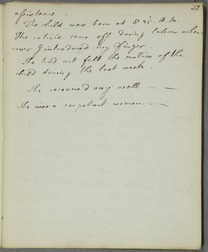 52
assistance.
The child was born at 8.25 A.M.
The cuticle came off during labour when
ever I introduced my finger.
She had not felt the motion of the
child during the last week.
She recovered very well —
She was a corpulent woman —